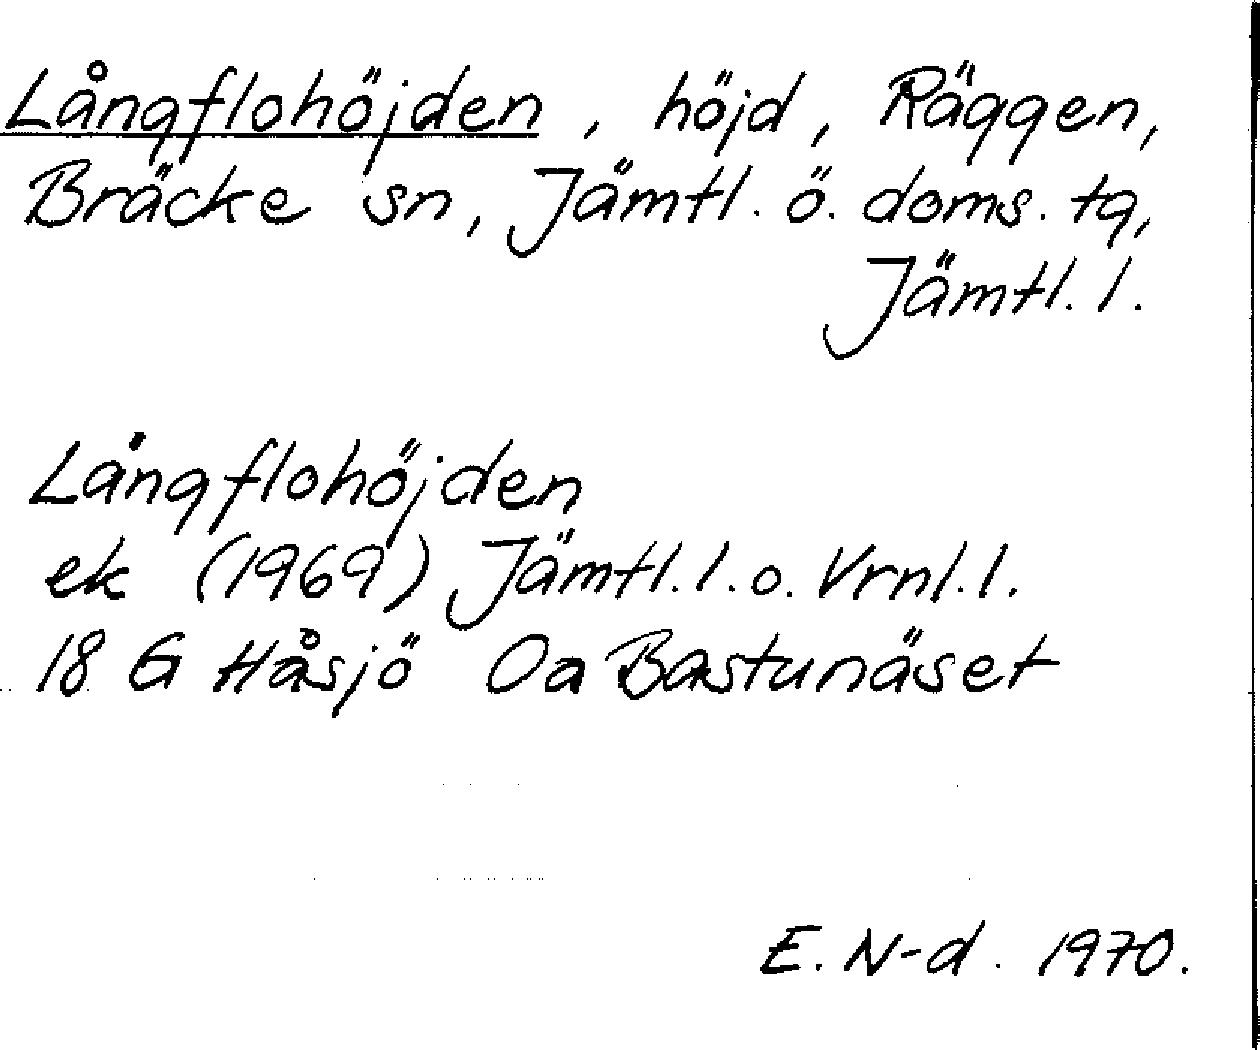 Långflohöjden, höjd, Räggen,
Bräcke sn, Jämtl. ö. doms. tg,
Jämtl. l.
Långflohöjden
ek (1969) Jämtl. l. o. Vrnl. l.
18 G Håsjö 0a Bastunäset
E. N-d. 1970.